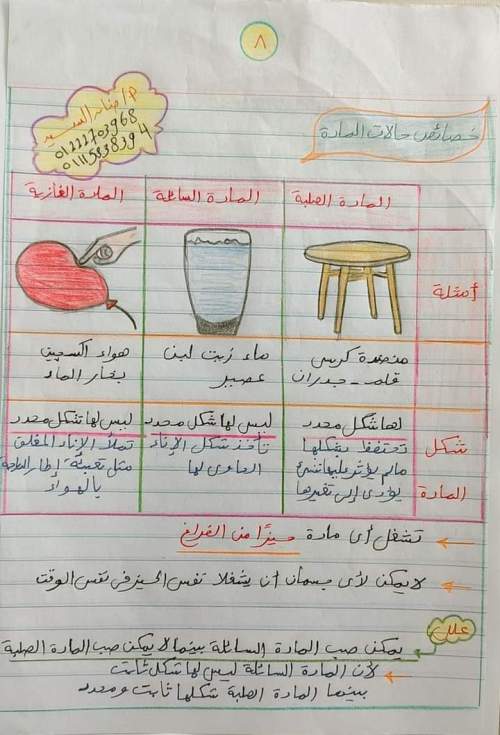 ٨
م/ منار السيد
01222703968
01115838394
خصائص حالات المادة
المادة الصلبة
المادة السائلة
المادة الغازية
أمثلة
منضدة كرسى
قلم - جدران
ماء زيت لبن
عصير
هواء اكسجين
بخار الماء
شكل
المادة
لها شكل محدد
تحتفظ بشكلها
مالم يؤثر عليها شئ
يؤدى إلى تغيرها
ليس لها شكل محدد
تأخذ شكل الإناء
الحاوى لها
ليس لها شكل محدد
تملأ الإناء المغلق
مثل تعبئة إطار
بالهواء
تشغل أى مادة حيزًا من الفراغ
لا يمكن لأى جسمان أن يشغلا نفس الحيز فى نفس الوقت
علل
يمكن صب المادة السائلة بينما لا يمكن صب المادة الصلبة
لأن المادة السائلة ليس لها شكل ثابت
بينما المادة الصلبة شكلها ثابت ومحدد